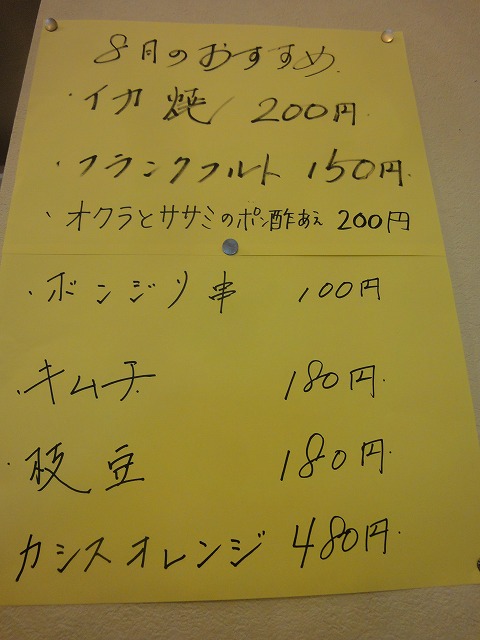 8月のおすすめ
・イカ焼 200円
・フランクフルト 150円
・オクラとササミのポン酢あえ 200円
・ボンジリ串 100円
・キムチ 180円
・枝豆 180円
カシスオレンジ 480円